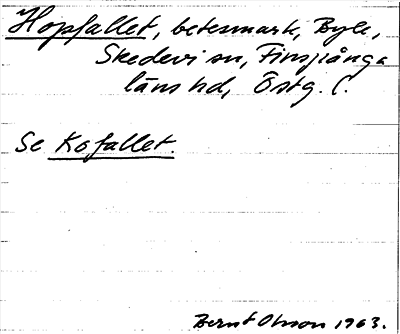 Hopfallet, betesmark, Byle,
Skedevi sn, Finspånga
läns hd, Östg. l.
Se Kofallet.
Bernt Olsson 1963.